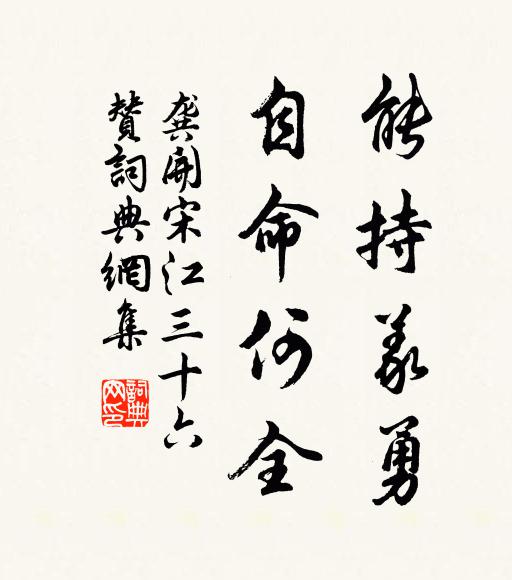 能持義勇
自命何全
龔開宋江三十六
贊詞典網集
詞典
网印